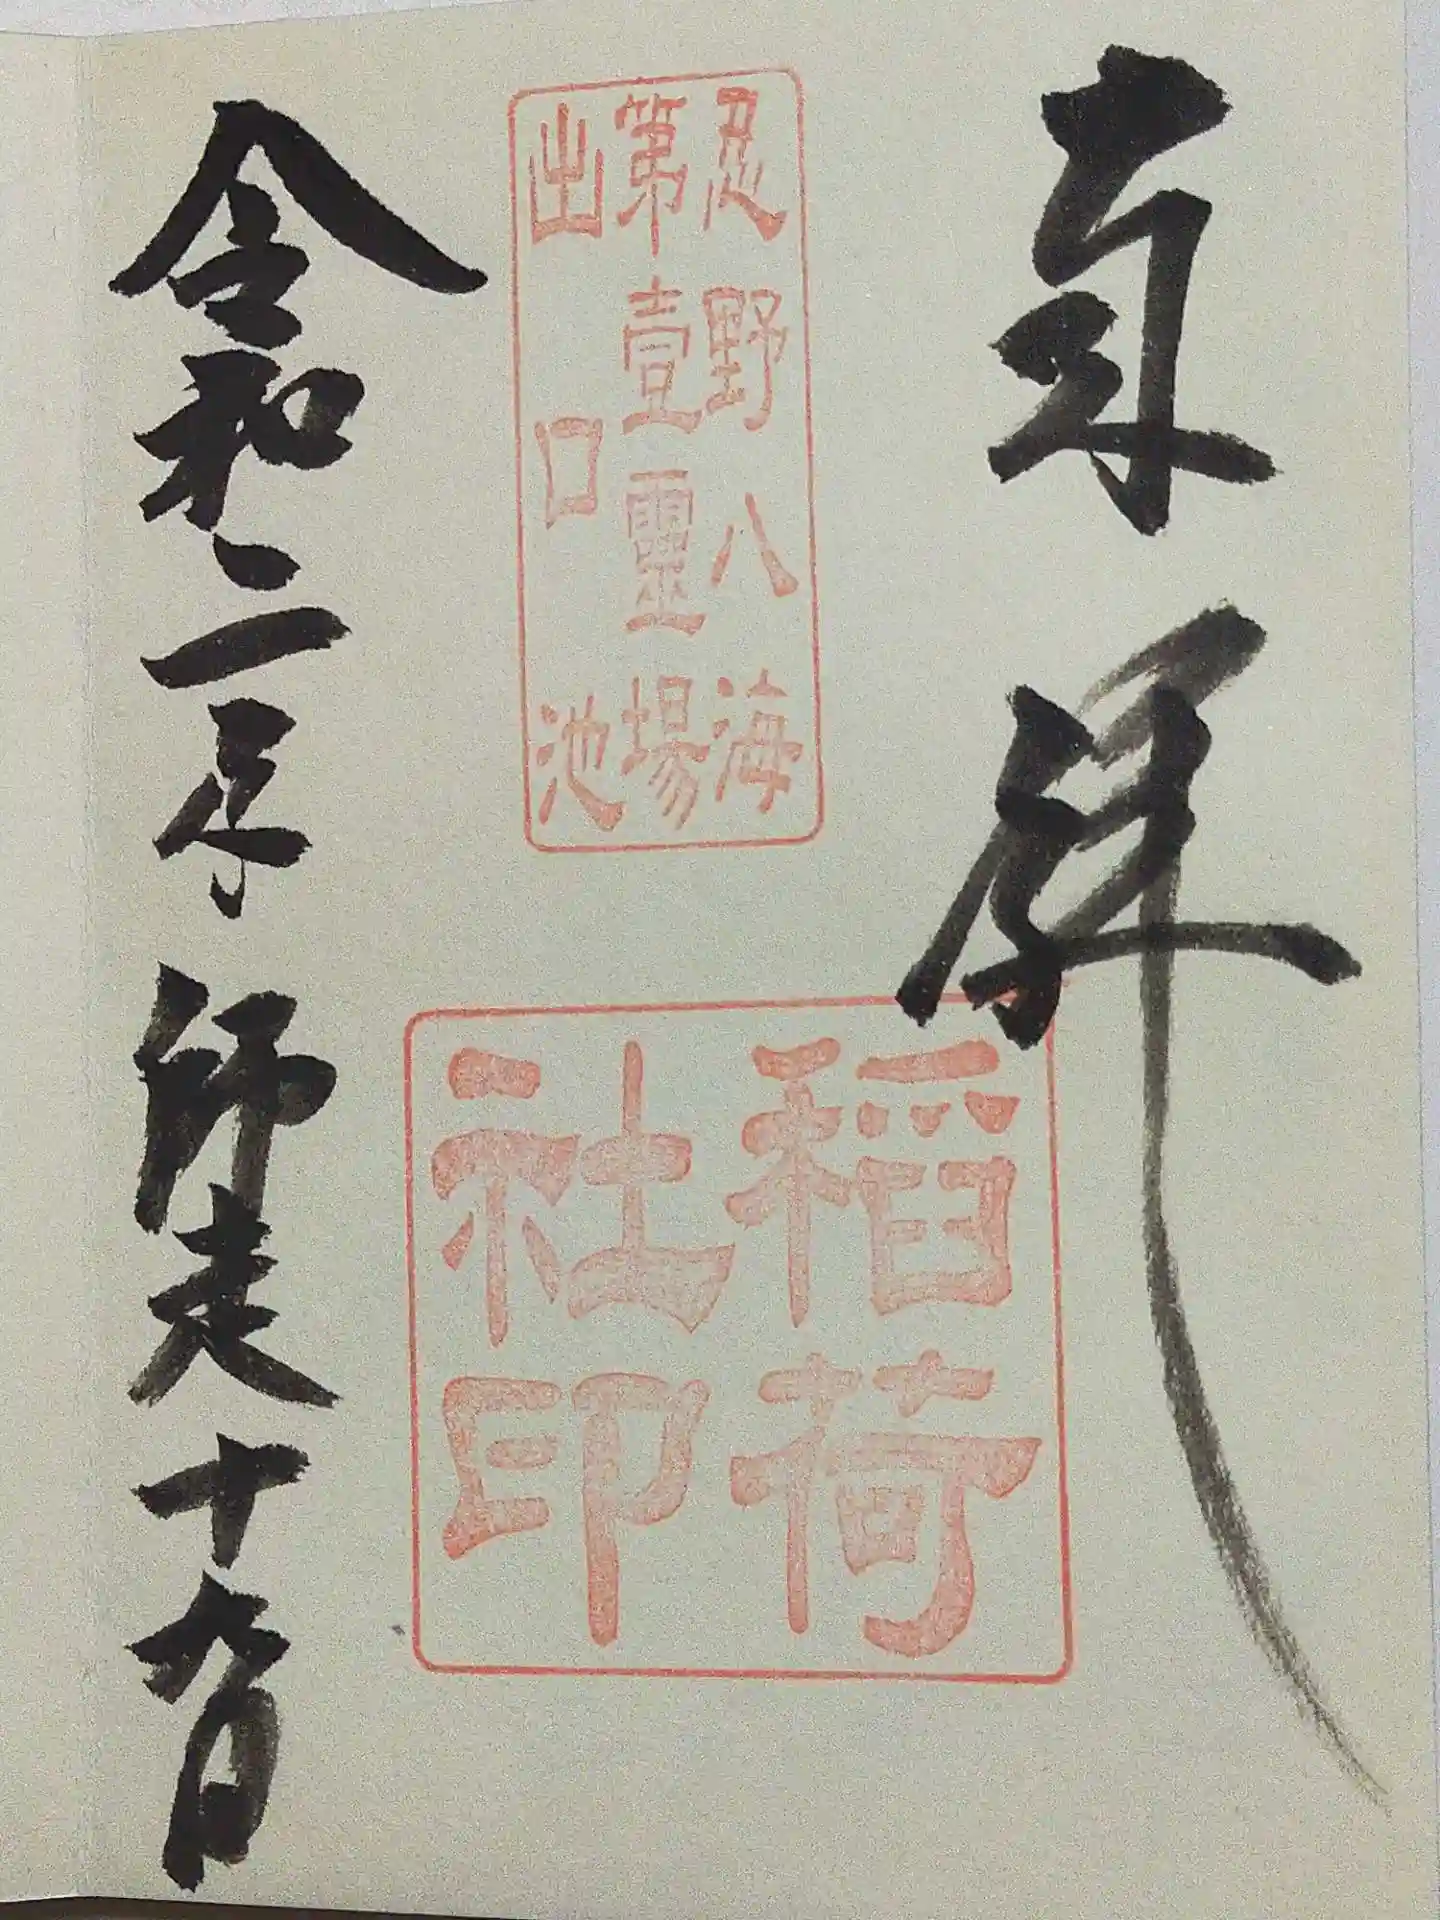 奉拝
忍野八海
第壹靈場
出口池
稲荷
社印
令和二年師走十九日